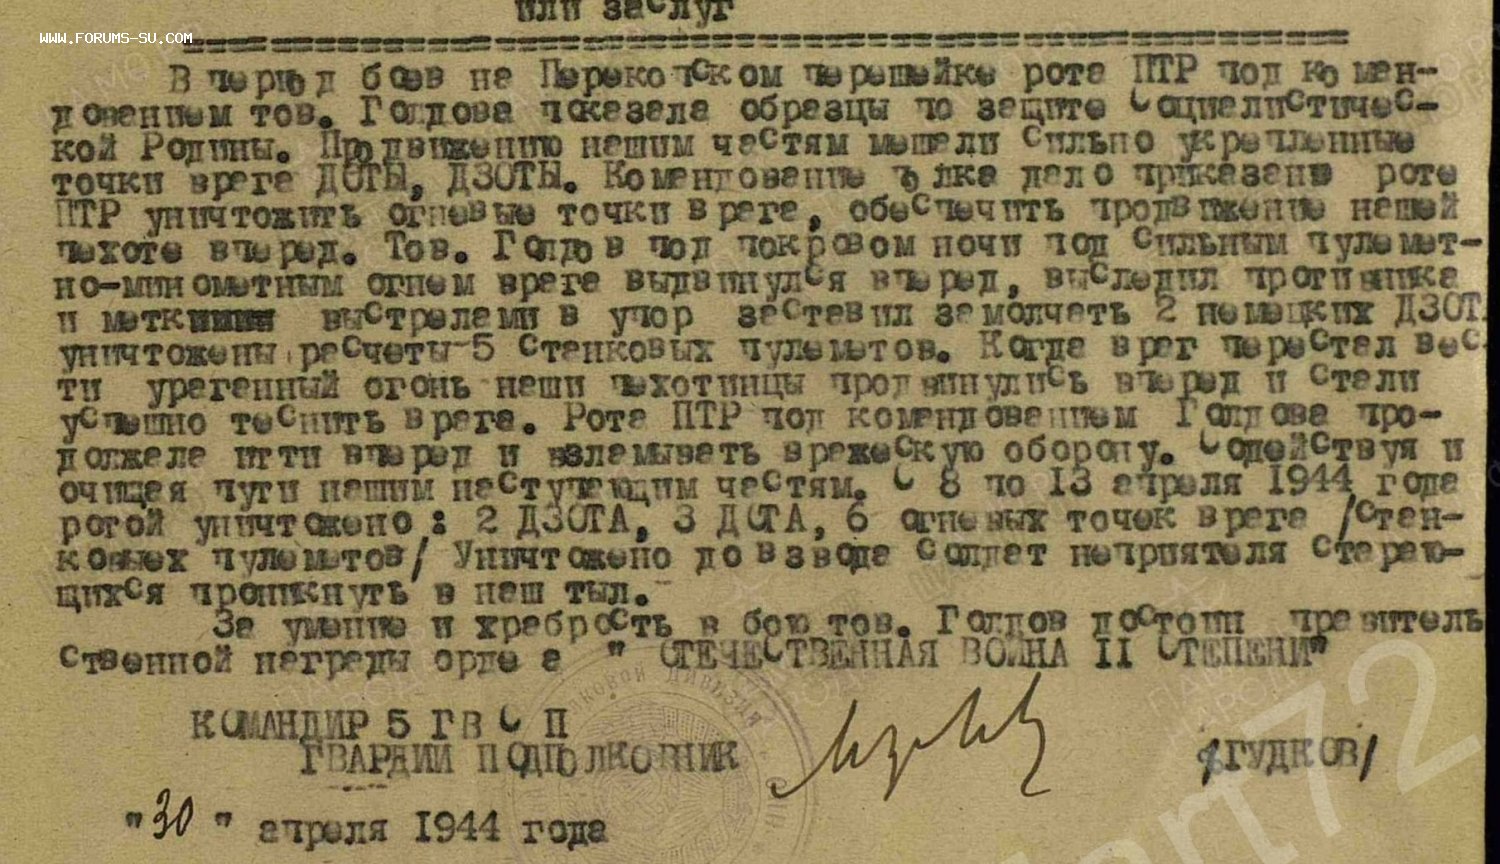 или заслуг
WWW.FORUMS-SU.COM
В период боев на Перекопском перешейке рота ПТР под коман-
дованием тов. Голдова показала образцы по защите Социалистичес-
кой Родины. Продвижению нашим частям мешали сильно укрепленные
точки врага ДОТЫ, ДЗОТЫ. Командование полка дало приказание роте
ПТР уничтожить огневые точки врага, обеспечить продвижение нашей
пехоте вперед. Тов. Голдов под покровом ночи под сильным пулемет-
но-минометным огнем врага выдвинулся вперед, выследил противника
и метким выстрелами в упор заставил замолчать 2 немецких ДЗОТ
уничтожены расчеты 5 станковых пулеметов. Когда враг перестал вес
ти ураганный огонь наши пехотинцы продвинулись вперед и стали
успешно теснить врага. Рота ПТР под командованием Голдова про-
должала итти вперед и взламывать вражескую оборону. Содействуя и
очищая пути нашим наступающим частям. С 8 по 13 апреля 1944 года
ротой уничтожено: 2 ДЗОТА, 3 ДОТА, 6 огневых точек врага /стан-
ковых пулеметов/ Уничтожено до взвода солдат неприятеля стараю-
щихся проникнуть в наш тыл.
За умение и храбрость в бою тов. Голдов достоин правитель
ственной награды орде а " ОТЕЧЕСТВЕННАЯ ВОЙНА II СТЕПЕНИ"
КОМАНДИР 5 ГВ С П
ГВАРДИИ ПОДПОЛКОВНИК /ГУДКОВ/
"30" апреля 1944 года